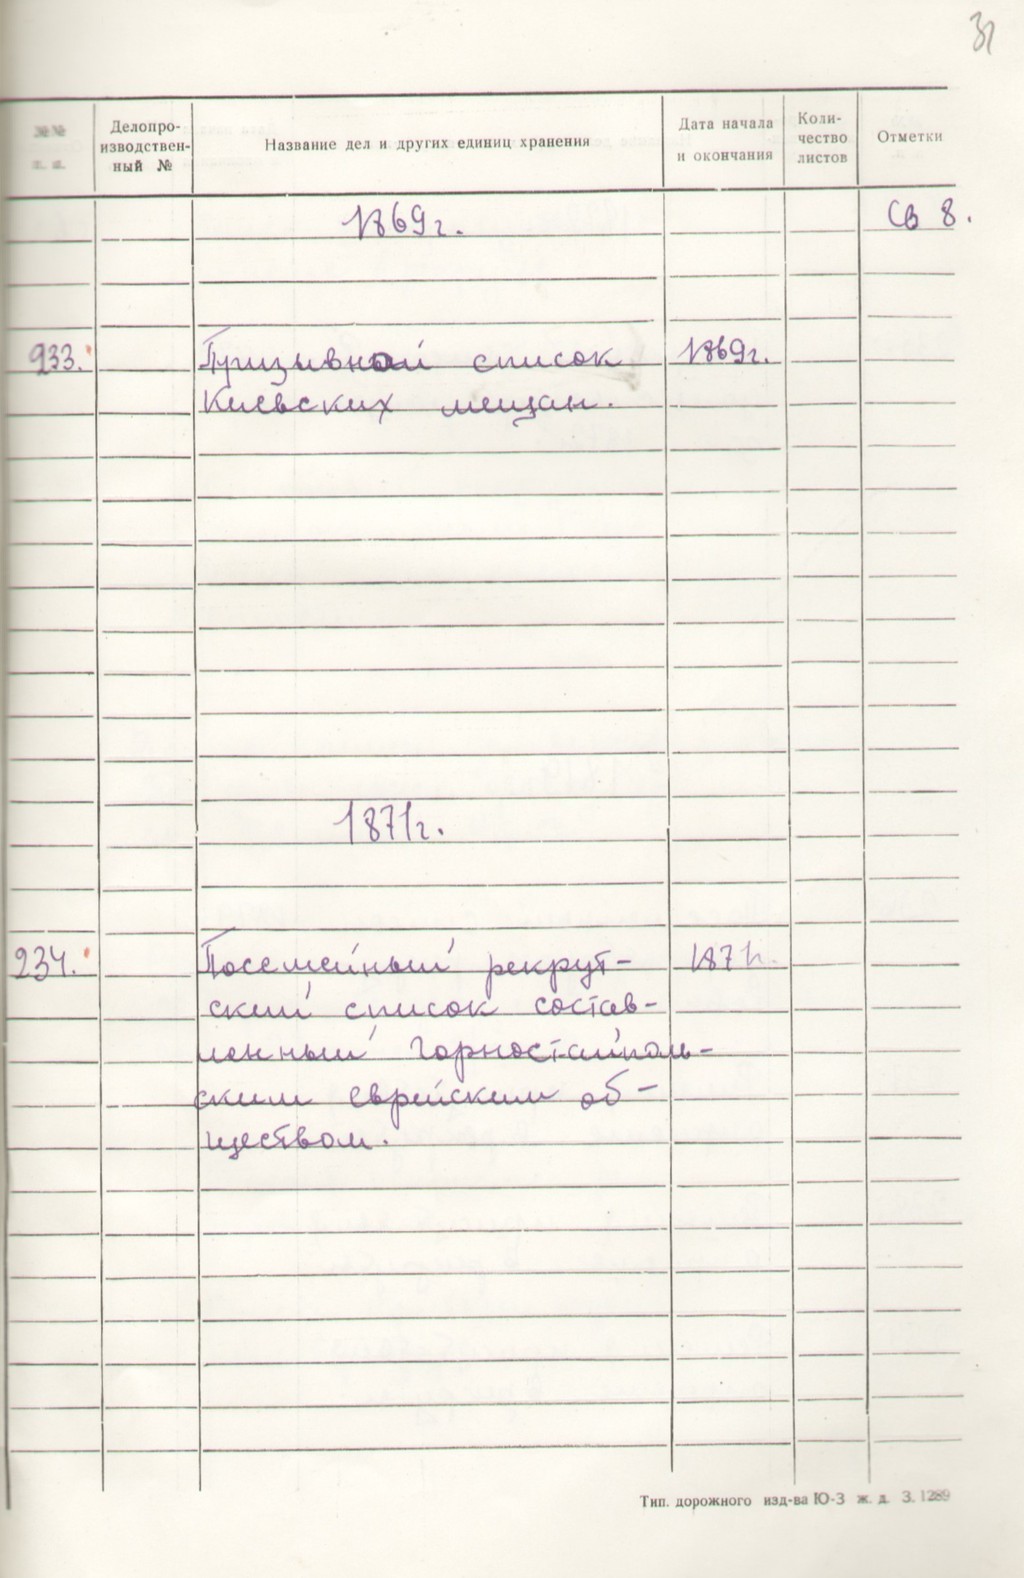 31
№№ п. п.
Делопро-
изводствен-
ный №
Название дел и других единиц хранения
Дата начала
и окончания
Коли-
чество
листов
Отметки
1869г.
Св 8.
933. Призывной список 1869г.
Киевских мещан.
1871г.
234. Посемейный рекрут- 1871г.
ский список состав-
ленный Горностайполь-
ским еврейским об-
ществом.
Тип. дорожного изд-ва Ю-З ж. д. З. 1289